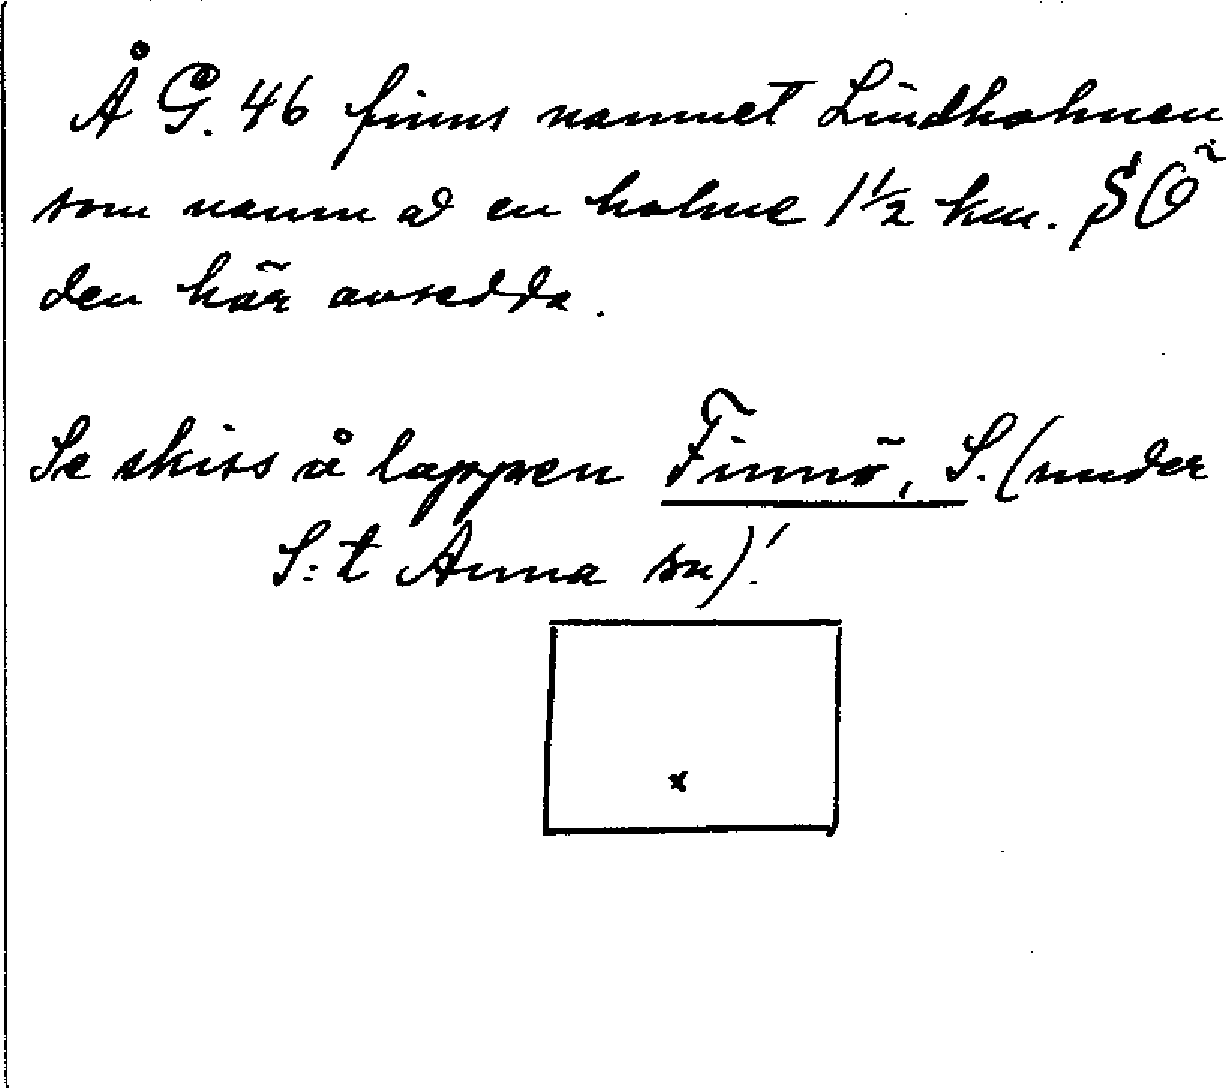 Å G. 46 finns namnet Lindholmen
som namn å en holme 1½ km. SÖ
den här avsedda.
Se skiss å lappen Finnö, S. (under
S:t Anna sn)!
x